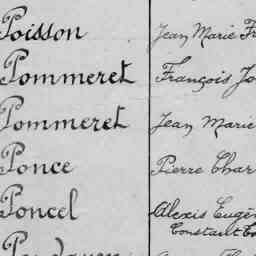 Poisson Jean Marie Fr
Pommeret François Jo
Pommeret Jean Marie
Ponce Pierre Char
Poncel Alexis Eugèn
Constant